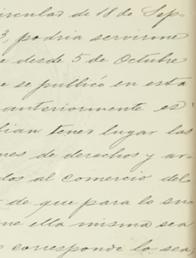 ircular de 18 de Sep-
3, podria servirme
e desde 5 de Octubre
e se publicó en esta
anteriormente es-
lian tener lugar las
nes de derechos y ar-
dos al comercio del
de que para lo su-
ue ella misma sea
corresponde lo sea